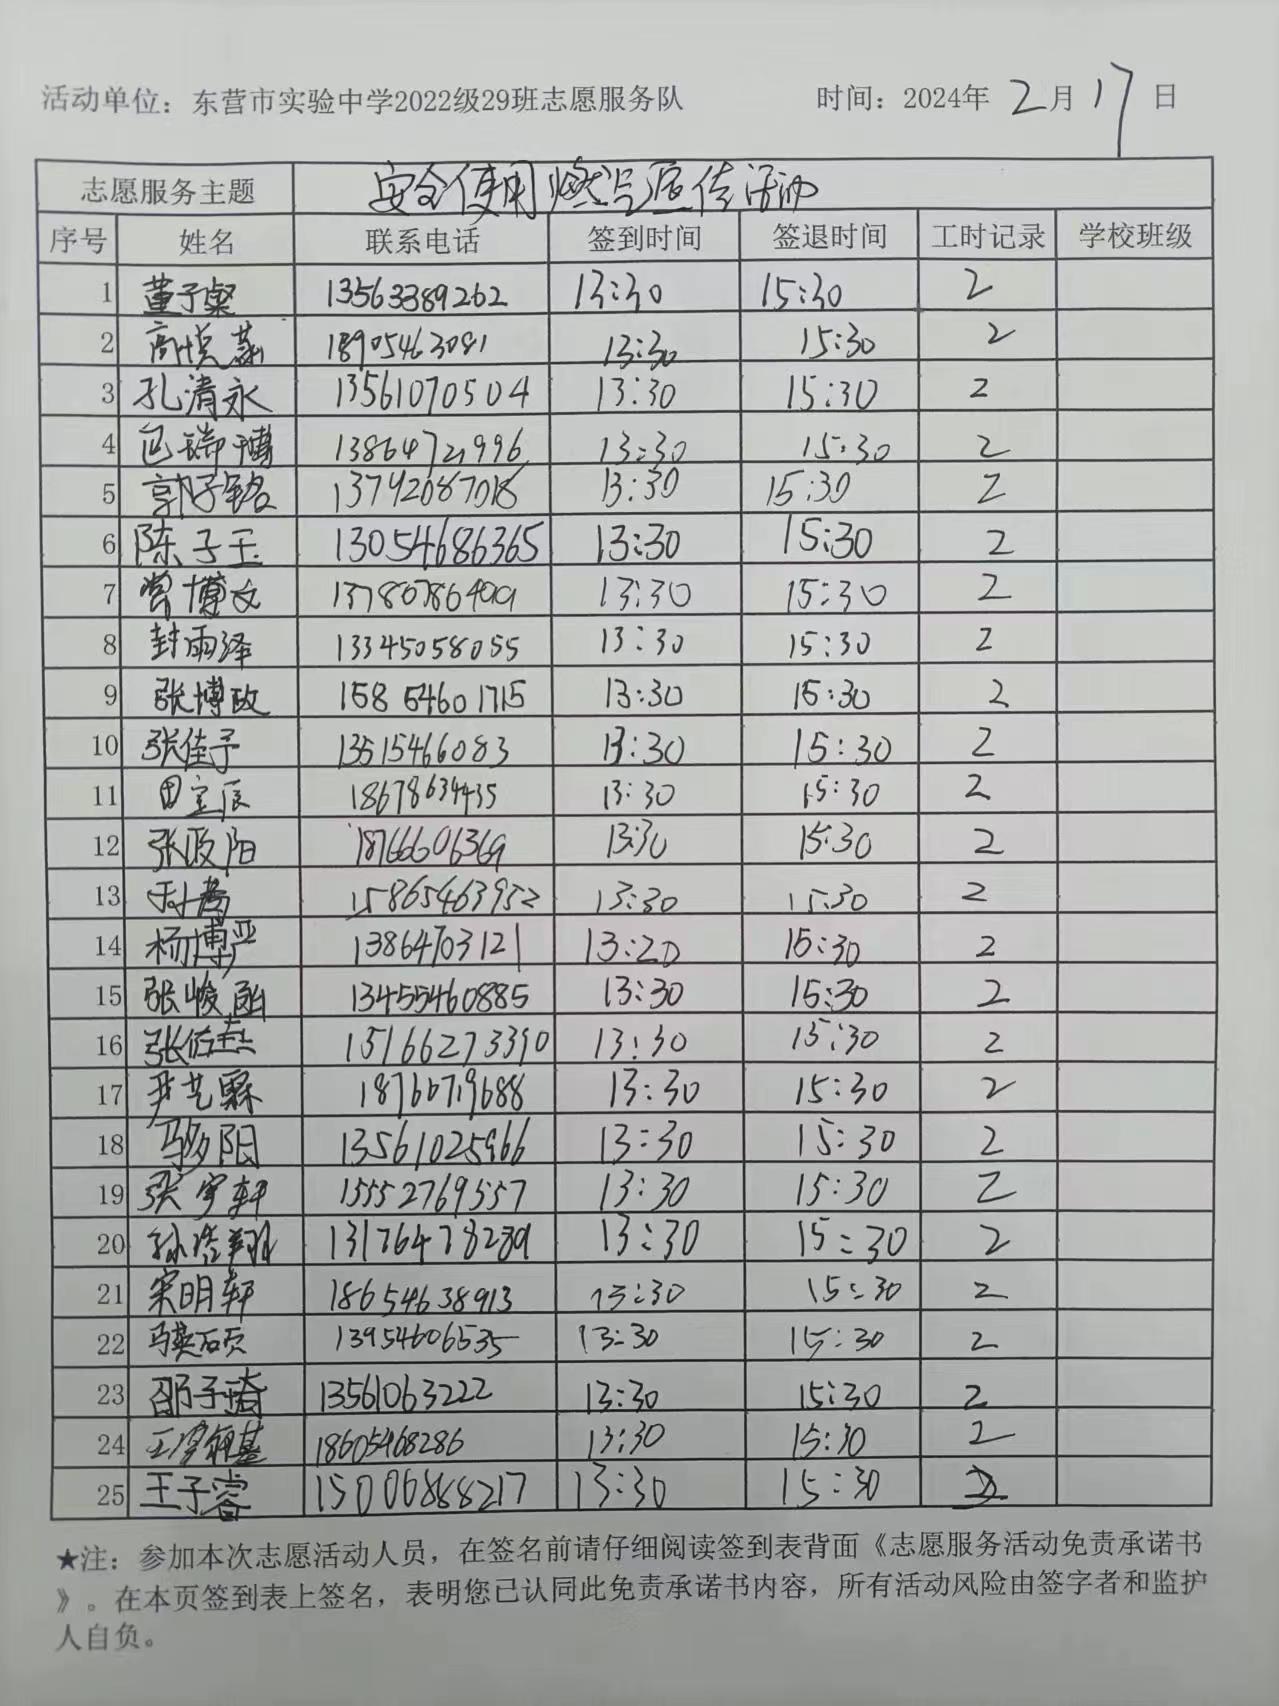 活动单位：东营市实验中学2022级29班志愿服务队 时间：2024年 2月 17 日
志愿服务主题 安全使用燃气宣传活动
序号 姓名 联系电话 签到时间 签退时间 工时记录 学校班级
1 董子粲 13563389262 13:30 15:30 2
2 高悦 18905463081 13:30 15:30 2
3 孔清永 13561070504 13:30 15:30 2
4 瑞博 13864721996 13:30 15:30 2
5 郭子铭 13792087018 13:30 15:30 2
6 陈子玉 13054686365 13:30 15:30 2
7 曾博文 13:30 15:30 2
8 封雨泽 13345058055 13:30 15:30 2
9 张博政 15854601715 13:30 15:30 2
10 张佳予 13515466083 13:30 15:30 2
11 田宝辰 18678634435 13:30 15:30 2
12 张阳 18766606369 13:30 15:30 2
13 15865463952 13:30 15:30 2
14 杨博严 13864703121 13:20 15:30 2
15 张峻函 13455460885 13:30 15:30 2
16 张 15166273390 13:30 15:30 2
17 尹艺霖 18760719688 13:30 15:30 2
18 阳 13561025966 13:30 15:30 2
19 张宇轩 15552769557 13:30 15:30 2
20 孙浩翔 13176478289 13:30 15:30 2
21 宋明轩 18654638913 13:30 15:30 2
22 马英硕 13954606535 13:30 15:30 2
23 邵子琦 13561063222 13:30 15:30 2
24 王 基 18605468286 13:30 15:30 2
25 王子睿 15006868217 13:30 15:30 2
★注：参加本次志愿活动人员，在签名前请仔细阅读签到表背面《志愿服务活动免责承诺书
》。在本页签到表上签名，表明您已认同此免责承诺书内容，所有活动风险由签字者和监护
人自负。